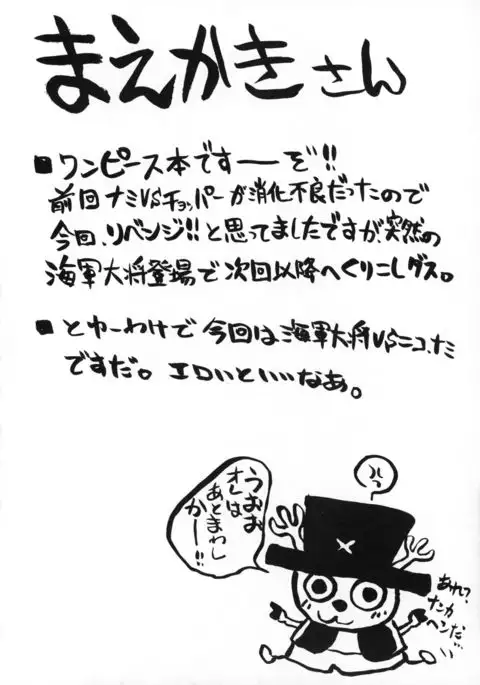 まえかきさん
■ワンピース本ですーーぞ!!
前回ナミVSチョッパーが消化不良だったので
今回、リベンジ!!と思ってましたですが、突然の
海軍大将登場で次回以降へくりこしゲス。
■とゆーわけで今回は海軍大将VSニコ、ナミ
ですだ。エロいといいなあ。
うおお
オレは
あとまわし
かー!!
あれ?
ナンカ
ヘンだ…